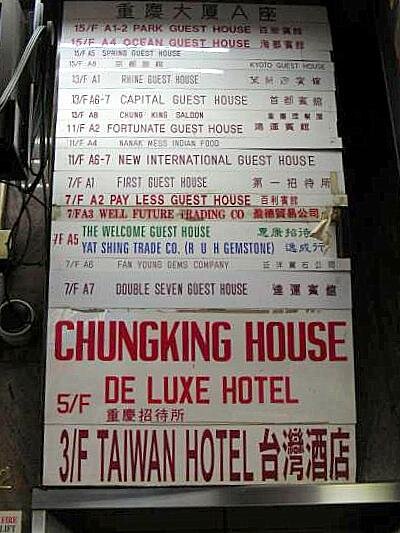 重慶大厦A座
15/F A1-2 PARK GUEST HOUSE 百樂賓館
15/F A4 OCEAN GUEST HOUSE 海都賓館
15/F A5 SPRING GUEST HOUSE
15/F A8 京都賓館 KYOTO GUEST HOUSE
13/F A1 RHINE GUEST HOUSE
13/F A6-7 CAPITAL GUEST HOUSE 首都賓館
13/F A8 CHUNG KING SALOON
11/F A2 FORTUNATE GUEST HOUSE 鴻運賓館
11/F A4 NANAK MESS INDIAN FOOD
11/F A6-7 NEW INTERNATIONAL GUEST HOUSE
7/F A1 FIRST GUEST HOUSE 第一招待所
7/F A2 PAY LESS GUEST HOUSE 百利賓館
7/FA3 WELL FUTURE TRADING CO 盈德貿易公司
7/F A5 THE WELCOME GUEST HOUSE 惠康招待
YAT SHING TRADE CO. (R U H GEMSTONE) 逸成行
7/F A6 FAN YOUNG GEMS COMPANY
7/F A7 DOUBLE SEVEN GUEST HOUSE 達運賓館
CHUNGKING HOUSE
5/F DE LUXE HOTEL
重慶招待所
3/F TAIWAN HOTEL 台灣酒店
FIRE
LIFT